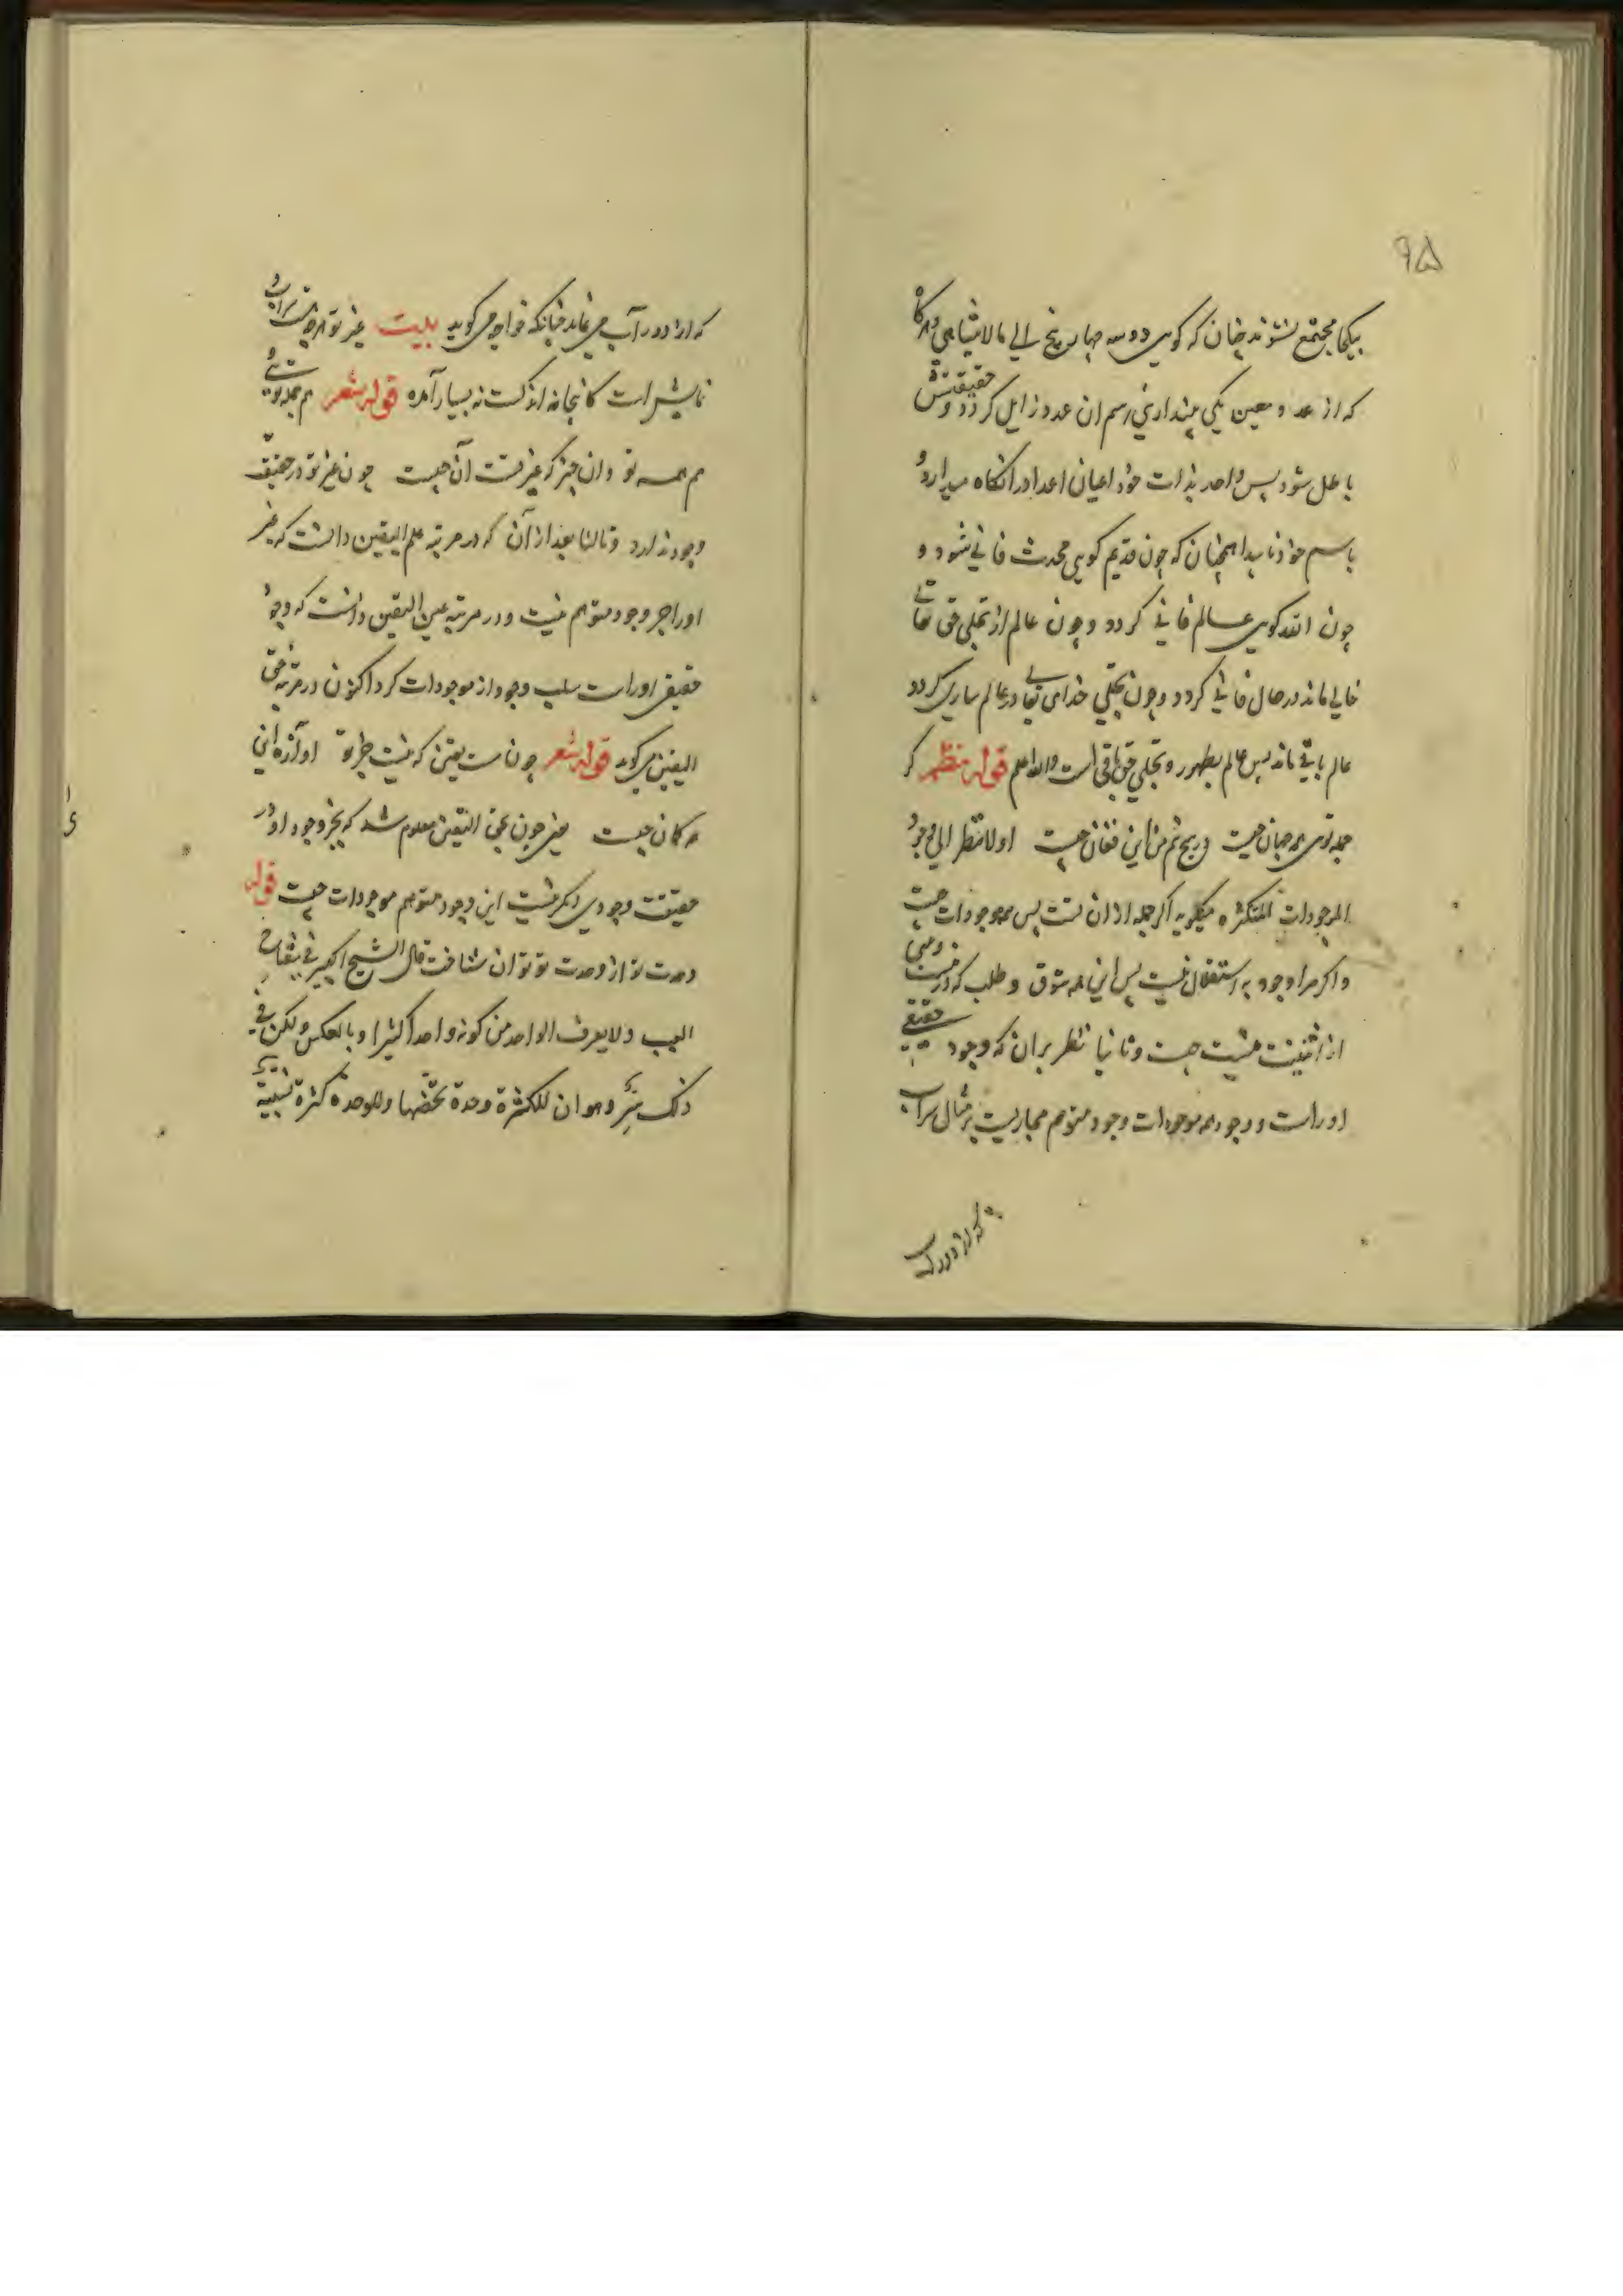 ۹۵
بیکجا مجتمع نشوند چنان که کویی دو سه چهار پنج الی مالایتناهی و هرکاه
که از عدد معین یکی بینداری اسم ان عدد زایل کردد و حقیقتش
باطل شود پس واحد بذات خود اعیان اعداد را نکاه میدارد و
باسم خود ناپیدا همچنان که چون قدیم کویی محدث فانی شود و
چون الله کویی عالم فانی کردد و چون عالم از تجلی حق تعالی
خالی ماند در حال فانی کردد و چون تجلی خدای تعالی در عالم ساری کردد
عالم باقی ماند پس عالم بظهور و تجلی حق باقی است والله اعلم قوله نظم کر
جمله توی همه جهان چیست ور هیچ نیم من این فغان چیست اولا نظر الی وجود
الموجودات المتکثره میکوید اکر جمله از ان تست پس همه موجودات چیست
و اکر مرا وجود به استقلال نیست پس این همه شوق و طلب که در من است
از اثنینیت چیست و ثانیا نظر بران که وجود حقیقی
اوراست و وجود همه موجودات وجود متوهم مجازیست بر مثال سراب
که از دور آب
که از دور آب می نماید چنانکه خواجو می کوید بیت غیر تو هرچه هست سراب و
نمایش است کانجا نه اندکست نه بسیار آمده قوله شعر هم جمله تویی و
هم همه تو وان چیز که غیر تست آن چیست چون غیر تو در حقیقت
وجود ندارد و ثالثا بعد از آن که در مرتبه علم الیقین دانست که غیر
اورا جز وجود متوهم نیست و در مرتبه عین الیقین دانست که وجود
حقیقی اوراست سلب وجود از موجودات کرد اکنون در مرتبه حق
الیقین می کوید قوله شعر چون هست یقین که نیست جز تو اوازه این
همه کمان چیست یعنی چون بحق الیقین معلوم شد که بجز وجود او در
حقیقت وجودی دیکر نیست این وجود متوهم موجودات چیست قوله
وحدت تو از وحدت تو توان شناخت قال الشیخ الکبیر فی مفتاح
الغیب ولا یعرف الواحد من کونه واحدا کثیرا و بالعکس ولکن فی
ذلک سر وهو ان للکثرة وحدة تخصها وللوحدة کثرة نسبیة